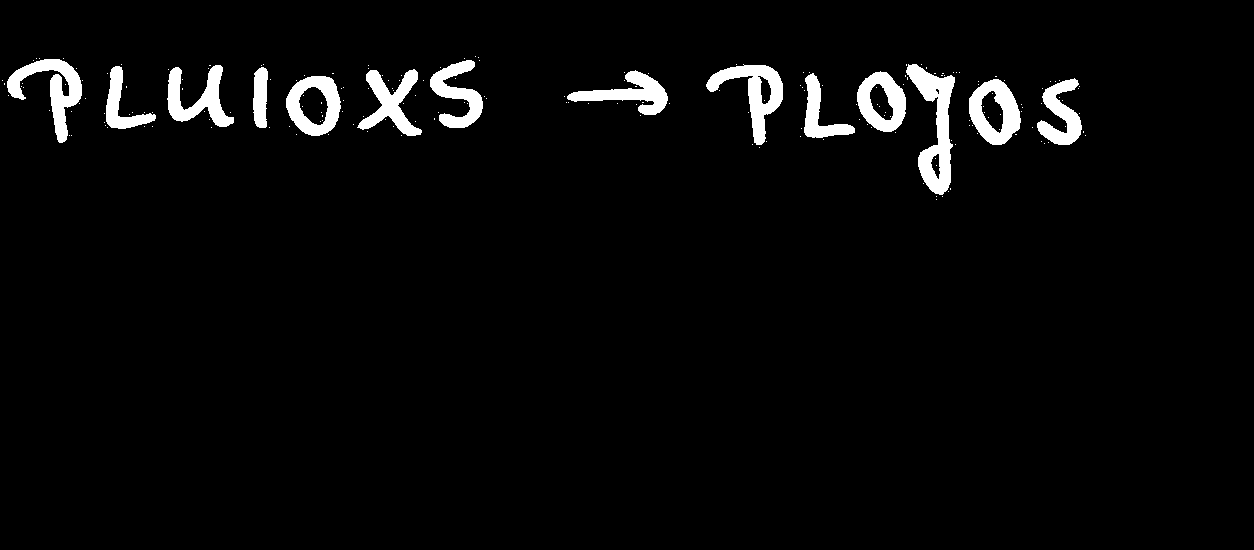 PLUIOXS → PLOJOS